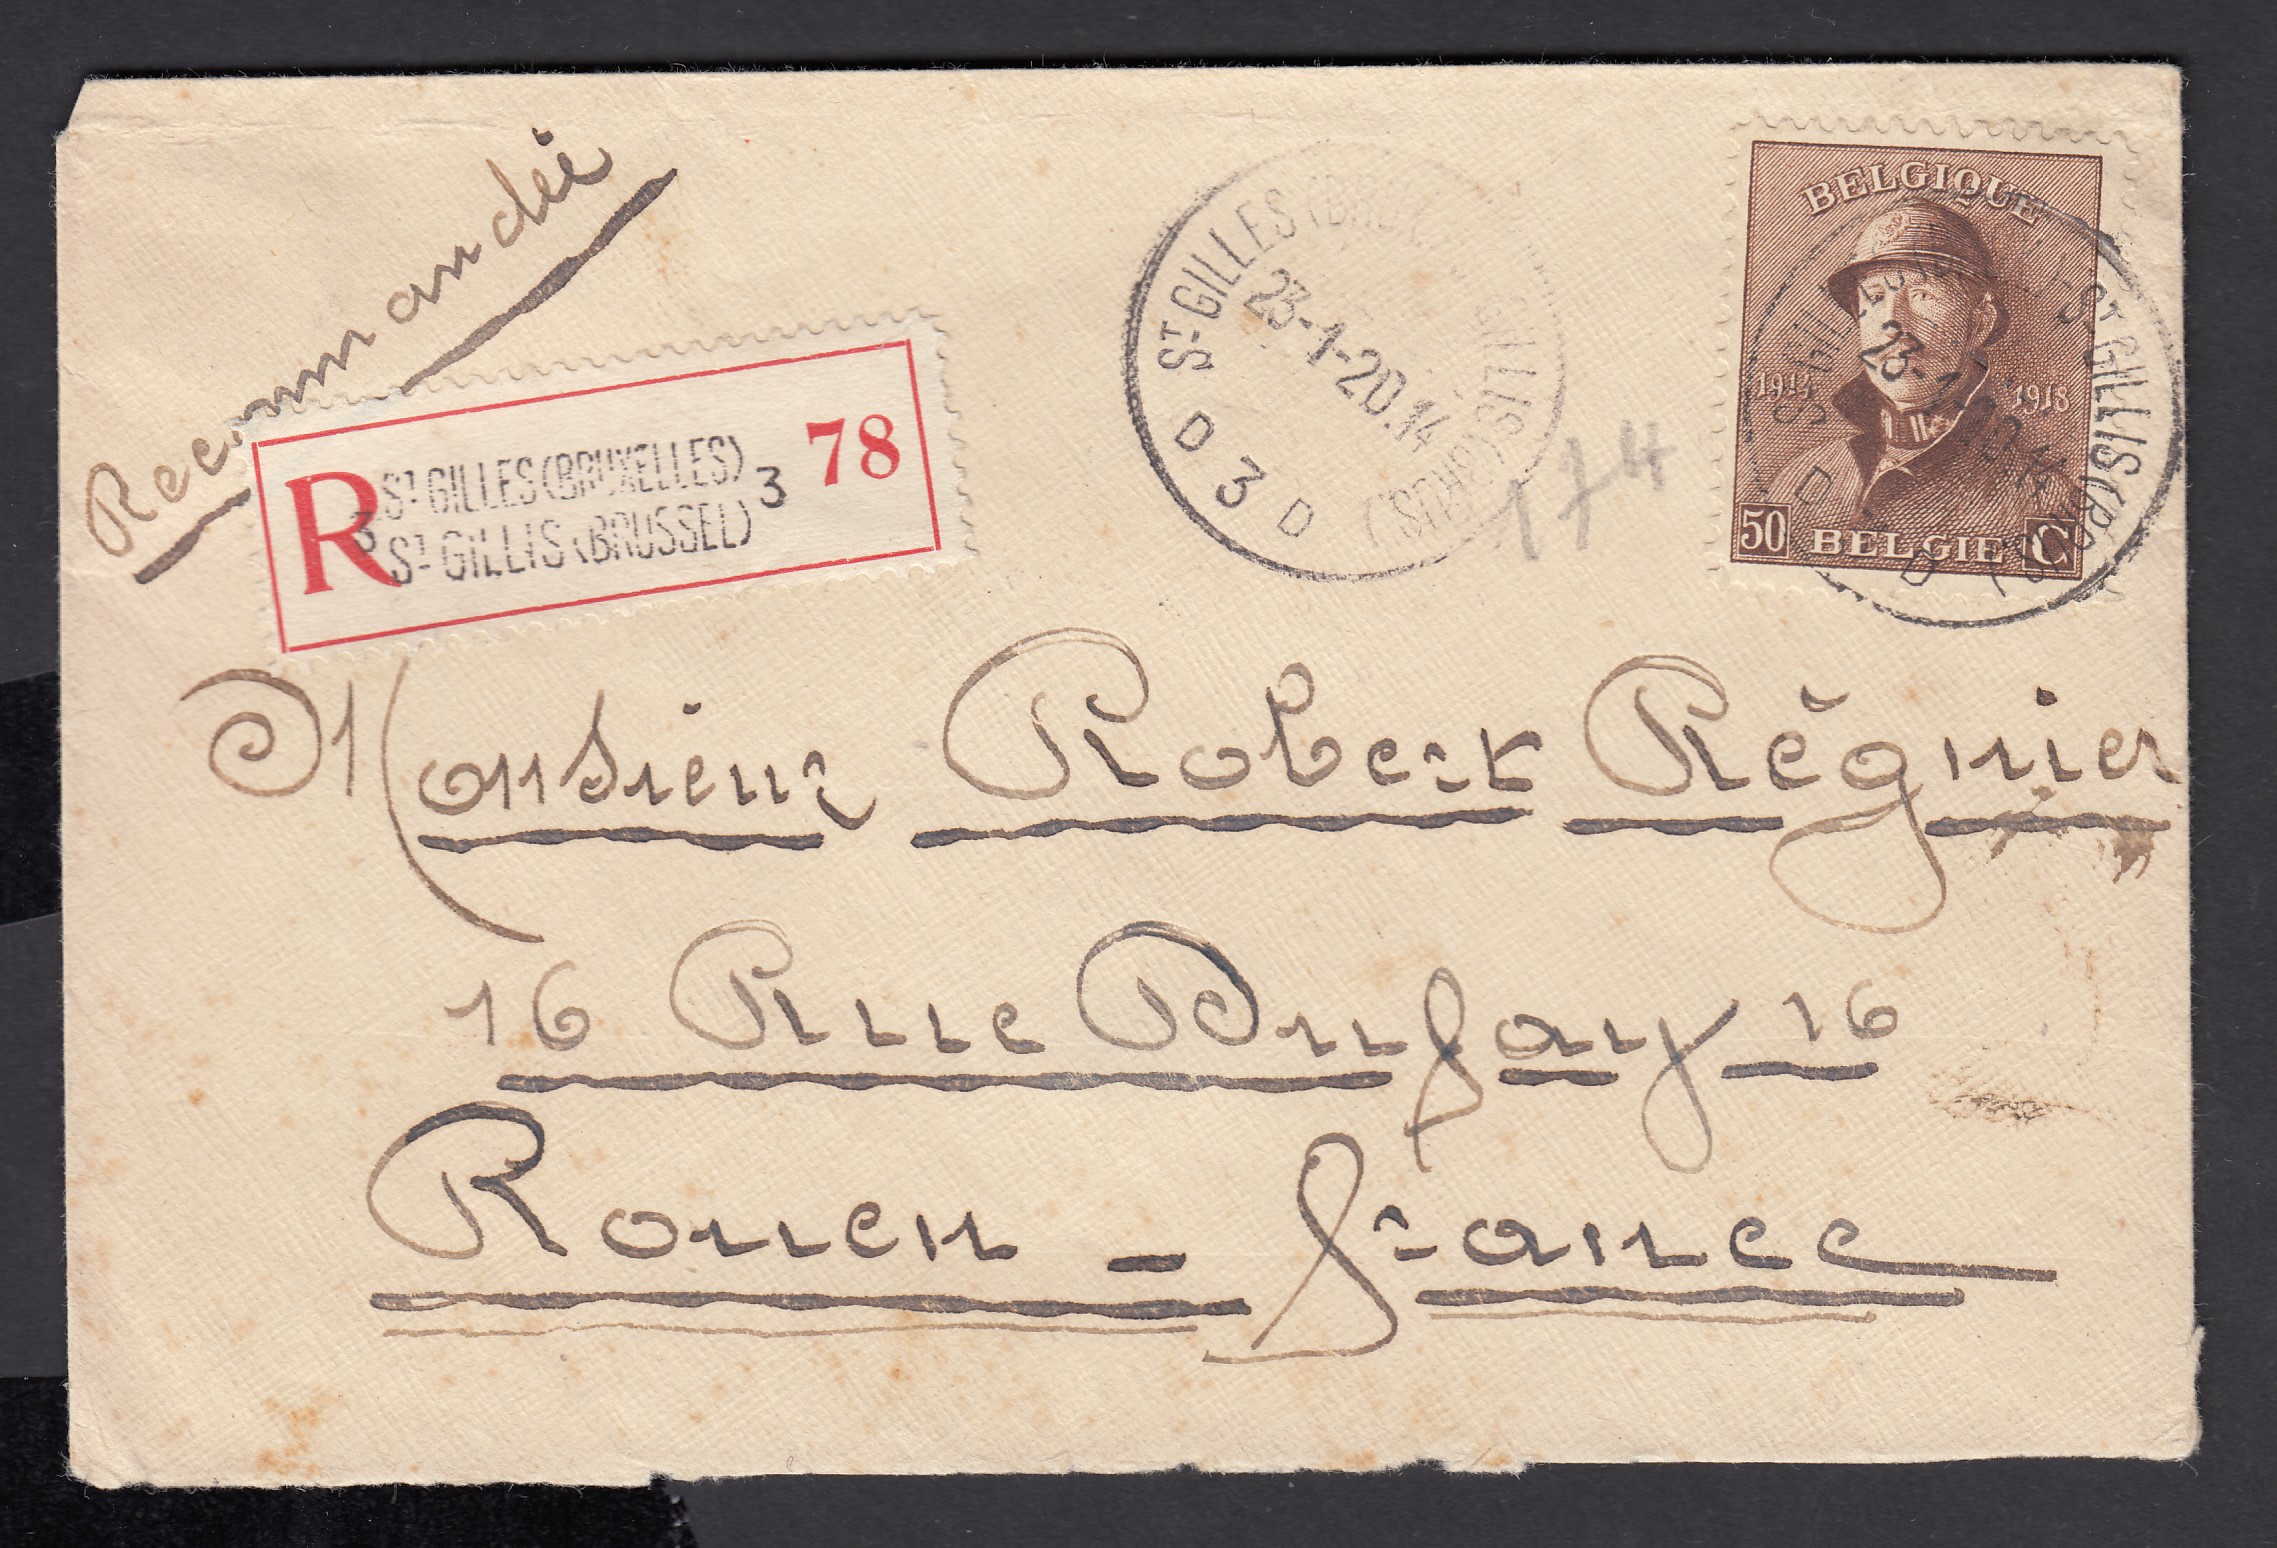 Recommandée
R
ST GILLES (BRUXELLES) 3
3 ST GILLIS (BRUSSEL)
78
ST GILLES (BRUX
23-1-20.14
ST GILLIS (BRUS)
D 3 D
174
BELGIQUE
1914 1918
50 BELGIE C
ST GILLIS (BRUS)
23-1-20.14
D D
Monsieur Robert Régnier
16 Rue Dufay 16
Rouen - France